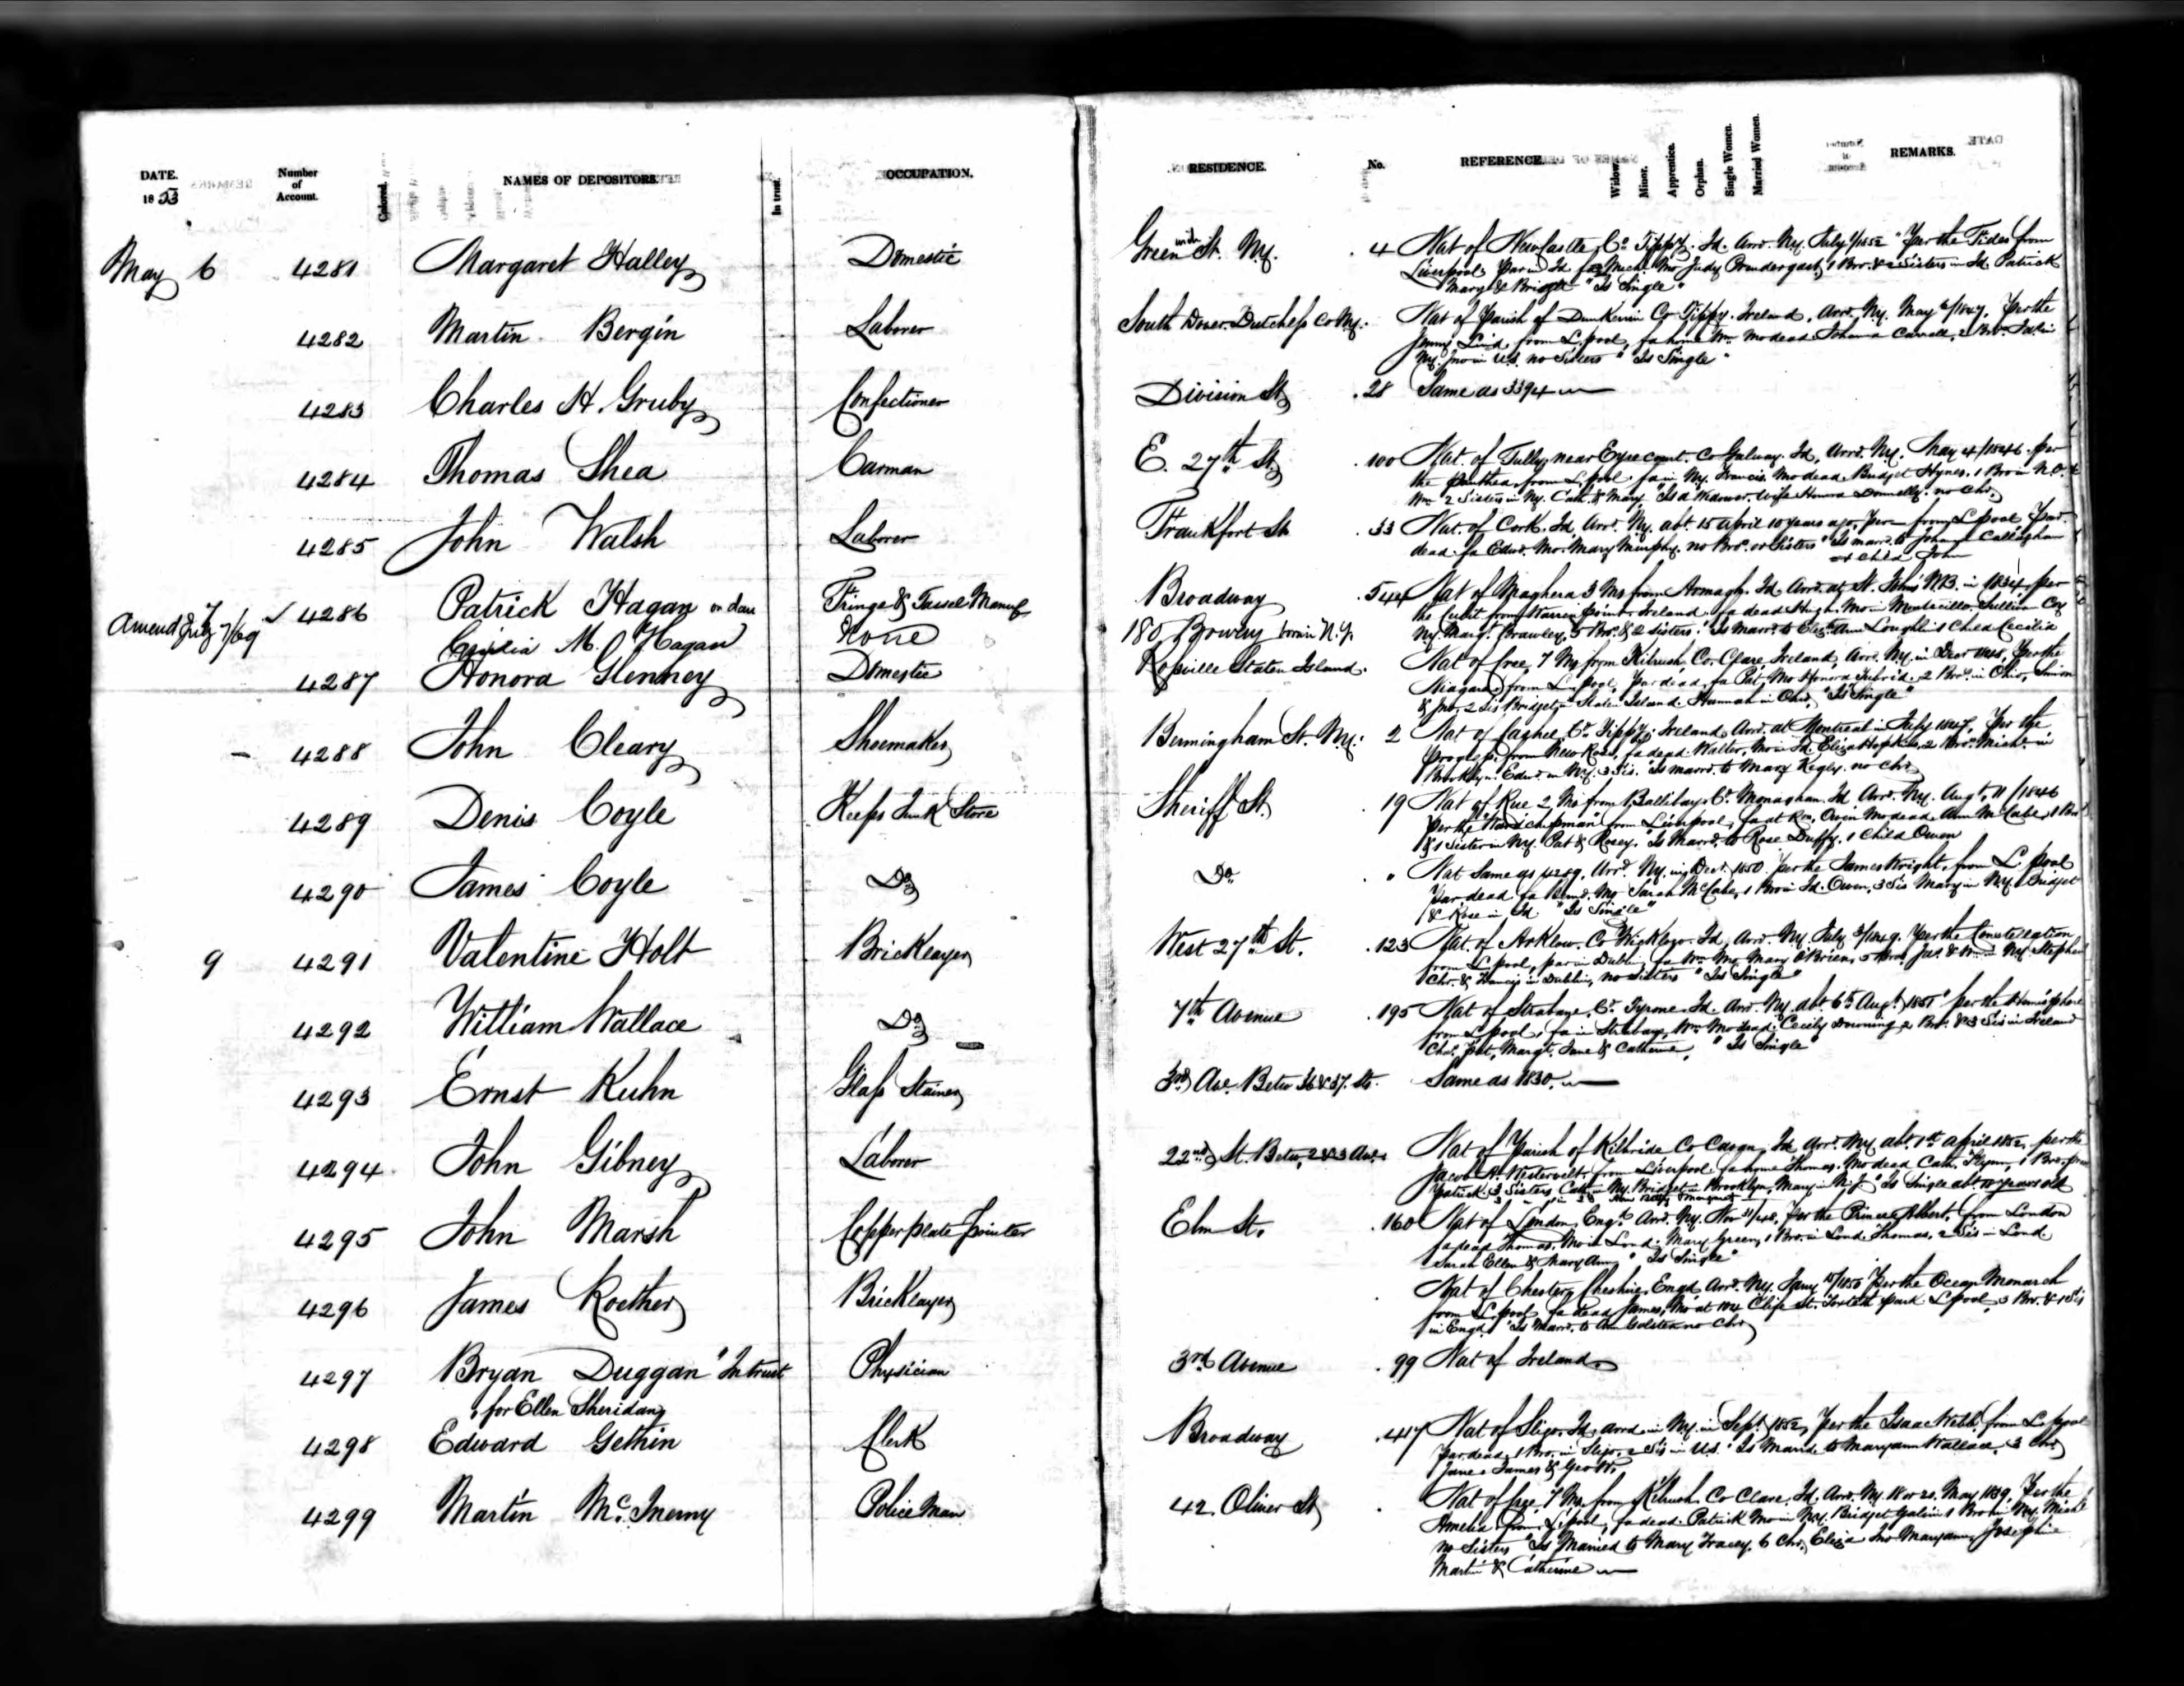 DATE.
1853
Number
of
Account.
Colored.
NAMES OF DEPOSITORS.
In trust.
OCCUPATION.
RESIDENCE.
No.
REFERENCE.
Widow.
Minor.
Apprentice.
Orphan.
Single Women.
Married Women.
REMARKS.
May 6 4281 Margaret Halley Domestic Greenwich St. Ny. 4 Nat of NewCastle Co. Tippy. Id. Arrd. Ny. July 1/1852 "Per the Fides from
Liverpool, Par in Id fa Mich. Mo Judy Prendergast, 1 Bro. & 2 Sisters in Id. Patrick
Mary & Bridget "Is Single"
4282 Martin Bergin Laborer South Dover. Dutchess Co Ny. Nat of Parish of Dunkerrin Co Tippy. Ireland, Arrd. Ny. May 6/1847, Per the
Jenny Lind, from L.pool, fa home Wm. Mo dead Johanna Carroll, 2 Bro.
Ny. Jno in U.S. no Sisters "Is Single"
4283 Charles H. Gruby Confectioner Division St .28 Same as 3394
4284 Thomas Shea Carman E. 27th St .100 Nat. of Tully, near Eyrecourt. Co Galway. Id, Arrd. Ny. May 4/1846. per
the Panthea, from L.pool. fa in Ny. Francis. Mo dead Bridget Hynes. 1 Bro in N.O.
Wm. 2 Sisters in Ny. Cath. & Mary "Is a Widower. Wife Honora Donnelly. no Chr.
4285 John Walsh Laborer Frankfort St .33 Nat. of Cork. Id Arrd. Ny. abt. 15 April 10 years ago, Per from L.pool Par.
dead. fa Edwd. Mo. Mary Murphy. no Bro. or Sisters "Is marrd. to Johanna Callaghan
1 Child John
Amend July 7/69 4286 Patrick Hagan or dau Fringe & Tassel Manuf Broadway .544 Nat of Maghera 3 Ms from Armagh. Id Arrd. at St. Johns NB. in 1834, per
the Cubit from Warrenpoint Ireland. fa dead Hugh. Mo in Monticello, Sullivan Coy
Cecilia M. O'Hagan None 180 Bowery born N.Y. Ny. Margt. Brawley. 5 Bro. & 2 Sisters. "Is Marrd. to Elizth. Ann Loughlin 1 Child Cecilia
4287 Honora Glenney Domestic Rossville Staten Island. Nat of Cree, 7 Ms from Kilrush, Co. Clare, Ireland, Arrd. Ny. in Decr 1848, Per the
Niagara, from L.pool, Par dead, fa Pat. Mo Honora 2 Bro. in Ohio, Simon
& Jno 2 Sis Bridget in Staten Island. Hannah in Ohio, "Is Single"
4288 John Cleary Shoemaker Bermingham St. Ny. 2 Nat of Cashel, Co. Tippy. Ireland, Arrd. at Montreal in July 1847, Per the
Progress, from New Ross, fa dead Walter, Mo in Id. Eliza Hopkins, 2 Bro. Michl. in
Brooklyn. Edwd. in Ny. 3 Sis. "Is marrd. to Mary Kegley. no Chr
4289 Denis Coyle Keeps Junk Store Sheriff St. 19 Nat of Rue 2 Ms from Ballibay Co. Monaghan. Id Arrd. Ny. Augt. 11/1846
Per the Ward Chipman from Liverpool, fa at Rue, Owen Mo dead. Ann McCabe, 1 Bro
& 1 Sister in Ny. Pat & Rosey. "Is Marrd. to Rose Duffy. 1 Child Owen
4290 James Coyle Do Do " Nat Same as 4289. Arrd. Ny. in Decr. 1850 per the James Wright, from L.pool
Par dead fa Mo Sarah McCabe, 1 Bro in Id. Owen, 3 Sis Mary in Ny. Bridget
& Rose in Id. "Is Single"
9 4291 Valentine Holt Bricklayer West 27th St. .123 Nat. of Arklow. Co Wicklow. Id, Arrd. Ny. July 3/1849. Per the Constellation
from L.pool, par in Dublin, fa Wm. Mo Mary O'Brien, 5 Bro. Jas. & Wm in Ny. Stephen
Chr. & Francis in Dublin, no Sisters "Is Single"
4292 William Wallace Do 7th Avenue .195 Nat of Strabane, Co. Tyrone. Id. Arrd. Ny. abt 6th Augt. 1851" per the Hemisphere
from L.pool, fa in Strabane, Wm. Mo dead. Cecily Downing 2 Bro. & 3 Sis in Ireland
Chas. Pat, Margt. Jane & Catherine, "Is Single"
4293 Ernst Kuhn Glass Stainer 3rd Ave. Betw 36 & 37. Sts. Same as 1830.
4294 John Gibney Laborer 22nd St. Betw, 2 & 3 Aves Nat of Parish of Kilbride Co Cavan, Id, Arrd. Ny. abt. 1st April 1852, per the
Jacob A. Westervelt, from Liverpool. fa home Thomas. Mo dead Cath. Flynn, 1 Bro.
Patrick. 3 Sisters Cath in Ny. Bridget in Brooklyn, Mary in N.J. "Is Single abt years old
4295 John Marsh Copperplate Printer Elm St. .160 Nat of London, Engd. Arrd. Ny. Nov 11/48, Per the Prince Albert, from London
fa dead Thomas. Mo in Lond. Mary Green, 1 Bro. in Lond. Thomas, 2 Sis in Lond.
Sarah Ellen & Mary Ann, "Is Single"
4296 James Roether Bricklayer Nat of Chester, Cheshire, Engd. Arrd. Ny. Jany 15/1850 Per the Ocean Monarch
from L.pool, fa dead James, Mo at 104 Clift St. Toxteth Park L.pool, 3 Bro. & 1 Sis
in Engd. "Is Marrd. to Ann Golsten no Chr
4297 Bryan Duggan "In trust Physician 3rd Avenue .99 Nat of Ireland
for Ellen Sheridan
4298 Edward Gethin Clerk Broadway .417 Nat of Sligo. Id, Arrd in Ny. in Sept. 1852, Per the Isaac Webb, from L.pool
Par dead, 1 Bro. in Sligo, 2 Sis in U.S. "Is Marrid to Maryann Wallace, 3 Chr
Jane James & Geo W.
4299 Martin McInerny Police Man 42. Oliver St Nat of Cree 7 Ms. from Kilrush. Co Clare. Id. Arrd. Ny. 18 or 20. May 1839. Per the
Amelia from L.pool, fa dead. Patrick Mo in Ny. Bridget Galvin 1 Bro in Ny. Michl
no Sisters "Is Married to Mary Tracey. 6 Chr. Eliza Jno Maryann, Josephine
Martin & Catherine